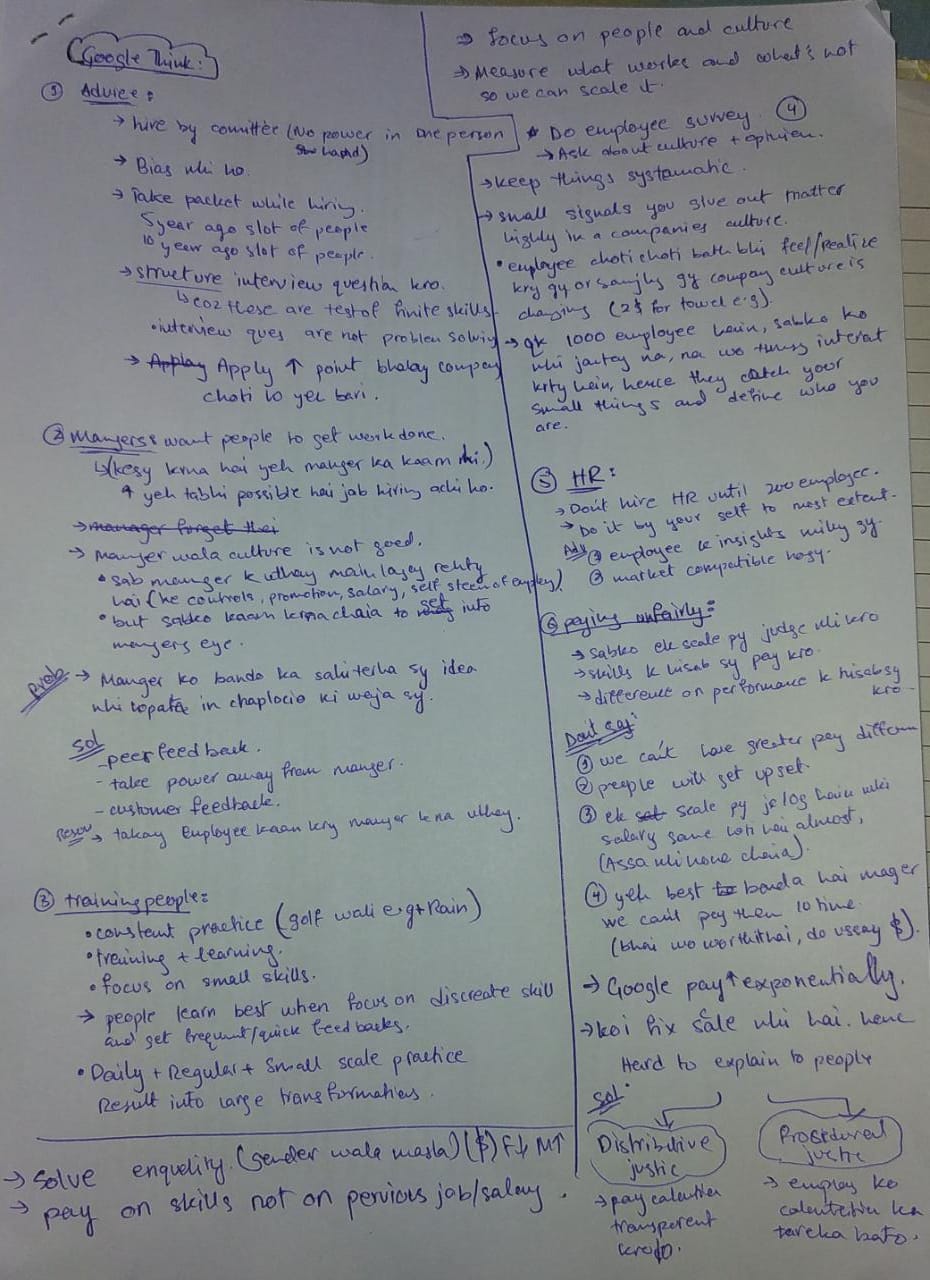 Google Think:
① Advice:
→ hire by committee (No power in one person
hand)
→ Bias nhi ho.
→ Take packet while hiring.
5 year ago slot of people
10 year ago slot of people.
→ structure interview question kro.
↳ coz these are test of finite skills.
• interview ques are not problem solving
→ Apply Apply ↑ point bhalay company
choti to yeh bari.
② Mangers: want people to get work done.
↳ (kesy krna hai yeh manger ka kaam nhi.)
↑ yeh tabhi possible hai jab hiring achi ho.
→ manager forget thei
→ Manger wala culture is not good.
• sab manger k uthay main lagey rehty
hai (he controls, promotion, salary, self steem of employ)
• but sabko kaam krna chaia to get into
mangers eye.
Prob → Manger ko bando ka sahi terha sy idea
nhi in chaplocio ki weja sy.
Sol
- peer feedback.
- take power away from manger.
- customer feedback.
→ takay Employee kaam kry manger k na uthey.
③ training people:
• constant practice (golf wali e.g + Rain)
• training + learning.
• focus on small skills.
→ people learn best when focus on discreate skill
and get frequent/quick feed backs.
• Daily + Regular + Small scale practice
Result into large transformations.
→ Solve enquelity. (gender wala masla) ($) F↓ M↑
→ pay on skills not on pervious job/salary.
→ focus on people and culture
→ Measure what works and what's not
so we can scale it.
* Do employee survey. ④
→ Ask about culture + ophnien.
→ keep things systamatic.
→ small signals you give out matter
highly in a companies culture.
• employee choti choti bath bhi feel/realize
kry gy or samjhy gy compay culture is
changing (2$ for towel e.g).
→ gk 1000 employee hain, sabko ko
nhi jantey na, na wo thumsy interat
krty hein, hence they catch your
small things and define who you
are.
⑤ HR:
→ Don't hire HR until 200 employee.
→ Do it by your self to most extent.
Adv ① employee k insights milky gy.
② market compatible hogy.
⑥ paying unfairly:
→ Sabko ek scale py judge nhi kro
→ skills k hisab sy pay kro.
→ difference on performance k hisab sy
kro -
Dont say:
① we can't have greater pay differen
② people will get upset.
③ ek set scale py jo log hain unki
salary same hoti hai almost,
(Assa nhi hona chaia).
④ yeh best to banda hai mager
we can't pay them 10 time.
(bhai wo worth it hai, do ussay $).
→ Google pay ↑ exponentially.
→ koi fix sale nhi hai. hence
Hard to explain to people
Sol:
Distributive
justic
→ pay calention
transperent
Procedural
justic
→ employ ko
calentetion ka
tareka bato.